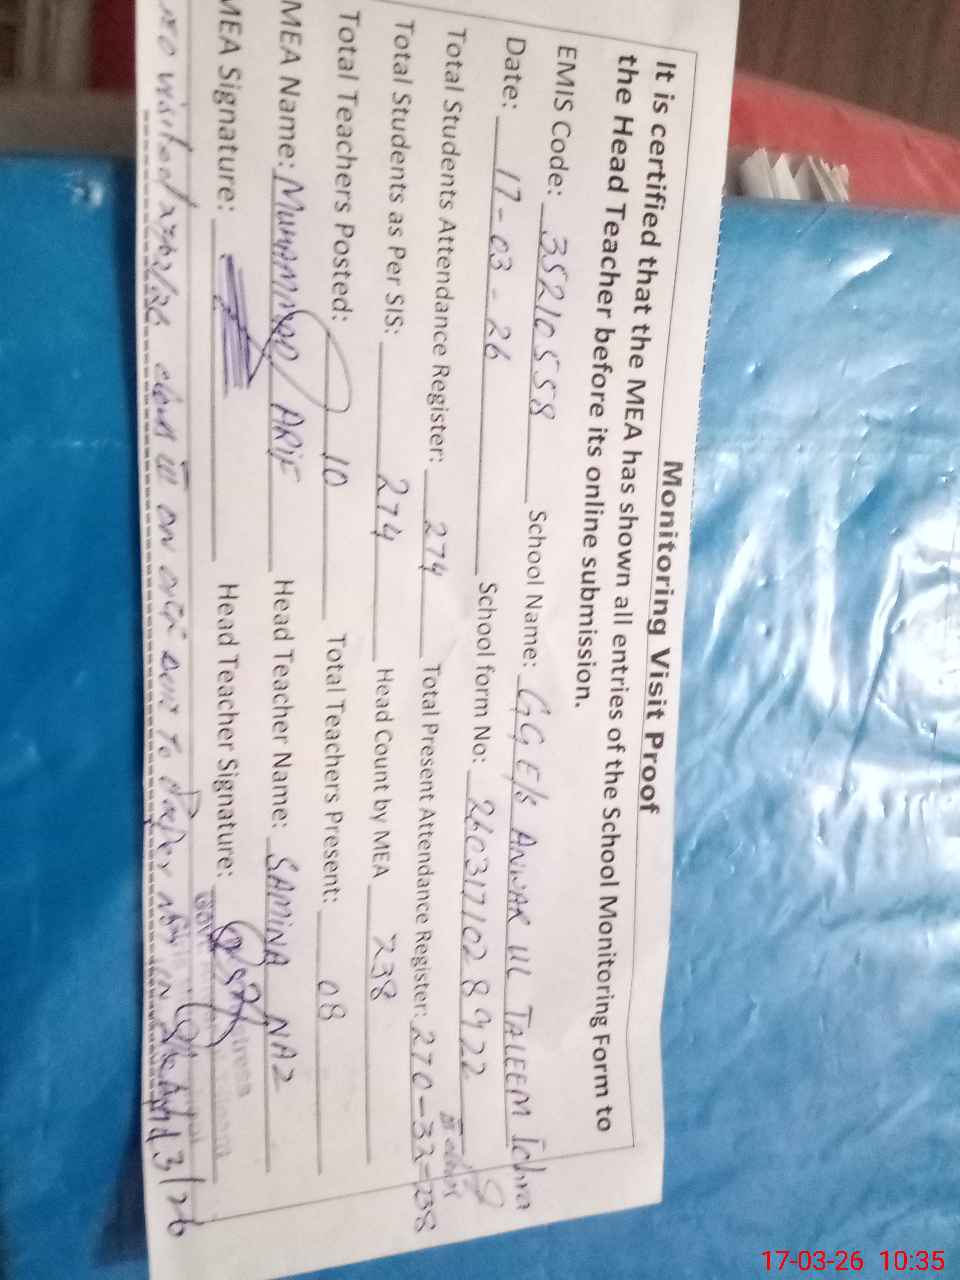 Monitoring Visit Proof
It is certified that the MEA has shown all entries of the School Monitoring Form to
the Head Teacher before its online submission.
EMIS Code: 35210558 School Name: GGE/s ANWAR UL TALEEM Ichra
Date: 17-03-26 School form No: 2603171028922
Total Students Attendance Register: 274 Total Present Attendance Register: 270-32=238
Total Students as Per SIS: 274 Head Count by MEA 238
Total Teachers Posted: 10 Total Teachers Present: 08
MEA Name: MUHAMMAD ARIF Head Teacher Name: SAMINA NAZ
MEA Signature: Head Teacher Signature:
visited on
17-03-26 10:35